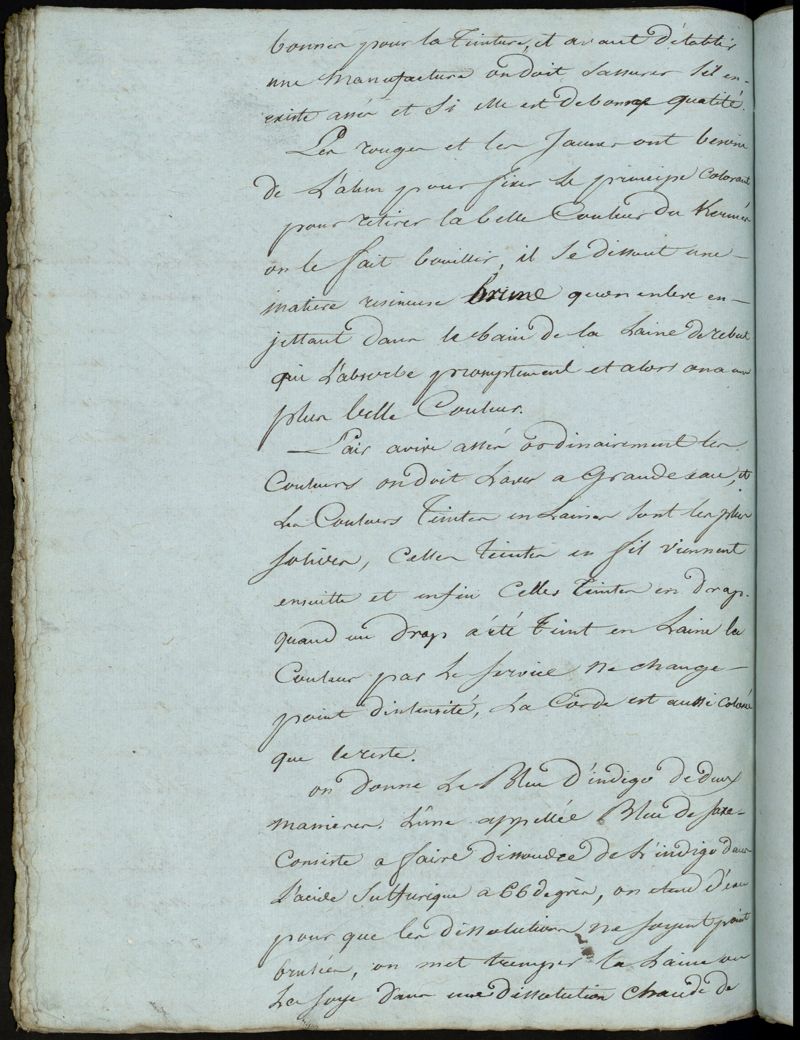 bonnes pour la Teinture, et avant d'établir
une manufacture on doit sassurer s'il en-
existe assés et si elle est de bonne qualité.
Les rouges et les Jaunes ont besoin
de L'alun pour fixer le principe colorant
pour retirer la belle Couleur du Kermès
on le fait bouillir, il se dissout une-
matiere resineuse brune quon enleve en-
jettant dans le bain de la Laine de rebut
qui L'absorbe promptement et alors on a une
plus belle Couleur.
L'air avive assés ordinairement les
Couleurs on doit Laver a Grande eau, et
Les Couleurs Teintes en Laines sont les plus
solides, Celles Teintes en fil viennent
ensuitte et enfin Celles Teintes en Drap.
quand un Drap a été Teint en Laine la
Couleur par Le service ne change-
point d'intensité, La Corde est aussi colorée
que le reste.
on Donne Le Bleu D'indigo de deux
manieres. L'une appellée Bleu de Saxe-
Consiste a faire dissoudre de L'indigo dans
L'acide Sulfurique a 66 degrés, on etend d'eau
pour que les dissolutions ne soyent point
brulées, on met tremper la Laine ou
La soye dans une dissolution chaude de